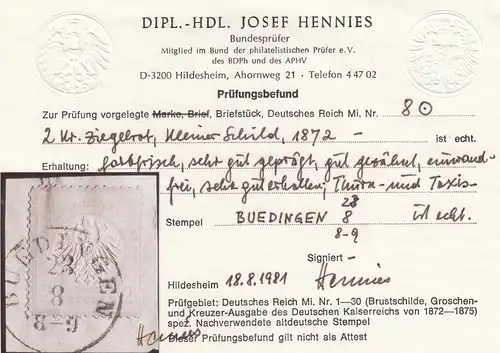 DIPL.-HDL. JOSEF HENNIES
Bundesprüfer
Mitglied im Bund der philatelistischen Prüfer e.V.
des BDPh und des APHV
D-3200 Hildesheim, Ahornweg 21 · Telefon 4 47 02
Prüfungsbefund
Zur Prüfung vorgelegte Marke, Brief, Briefstück, Deutsches Reich Mi. Nr. 8 ⊙
2 Kr. Ziegelrot, kleiner Schild, 1872 – ist echt.
Erhaltung: farbfrisch, sehr gut geprägt, gut gezähnt, einwand-
frei, sehr gut erhalten; Thurn- und Taxis-
Stempel BUEDINGEN 23 8 8-9 ist echt.
Signiert –
Hildesheim 18.8.1981 Hennies
Prüfgebiet: Deutsches Reich Mi. Nr. 1—30 (Brustschilde, Groschen-
und Kreuzer-Ausgabe des Deutschen Kaiserreichs von 1872—1875)
spez. Nachverwendete altdeutsche Stempel
Dieser Prüfungsbefund gilt nicht als Attest
BUEDINGEN
23
8
8-9
Hennies